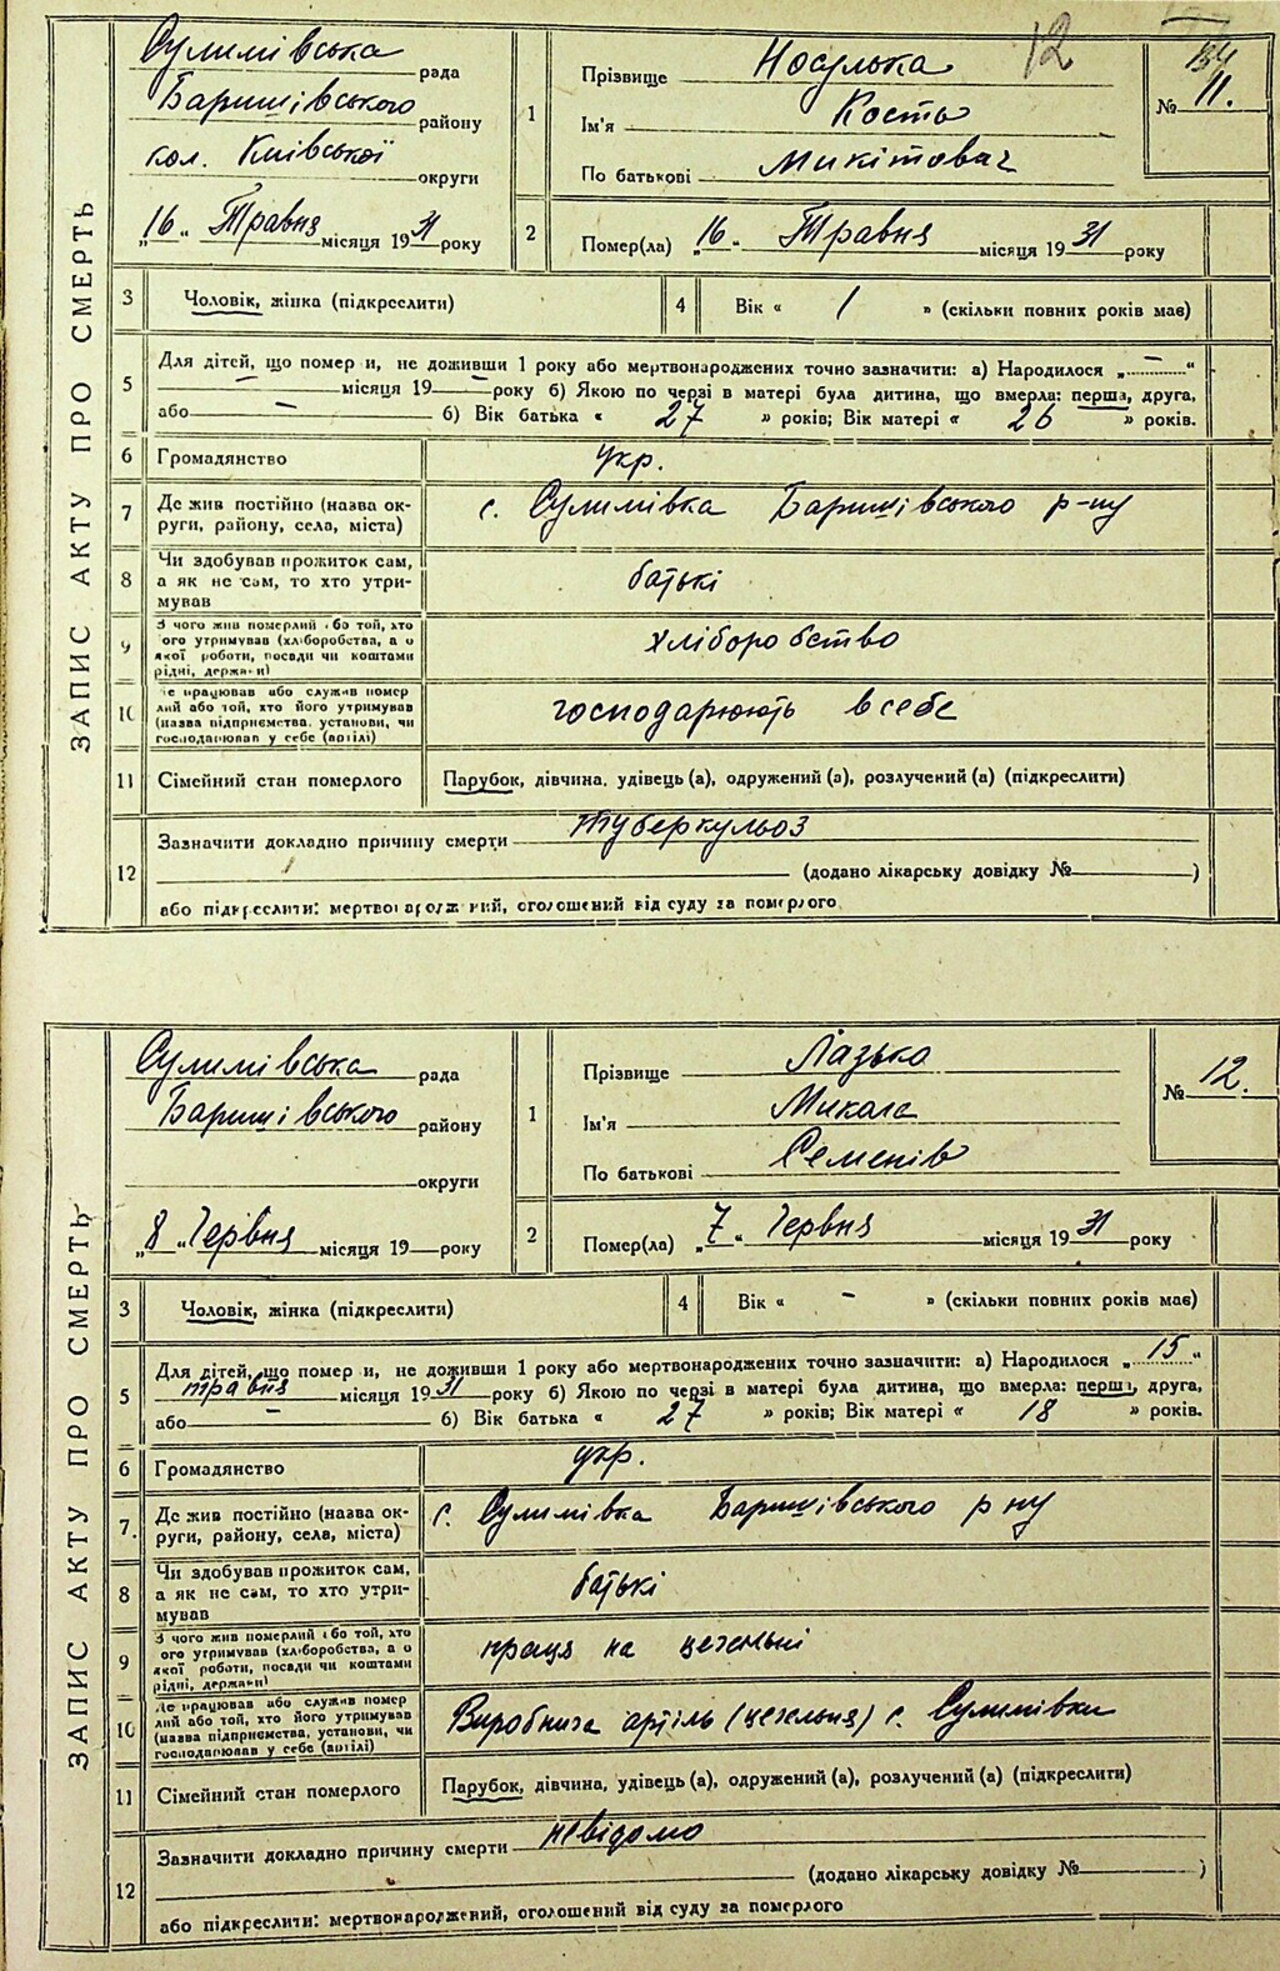 12
ЗАПИС АКТУ ПРО СМЕРТЬ
Сулимівська рада
Баришівського району
кол. Київської округи
„16“ Травня місяця 1931 року
1
Прізвище Носулька
Ім'я Кость
По батькові Микітович
№ 11.
2
Помер(ла) „16“ Травня місяця 1931 року
3 Чоловік, жінка (підкреслити)
4 Вік « 1 » (скільки повних років має)
5
Для дітей, що померли, не доживши 1 року або мертвонароджених точно зазначити: а) Народилося „ – “
– місяця 19 – року б) Якою по черзі в матері була дитина, що вмерла: перша, друга,
або – б) Вік батька « 27 » років; Вік матері « 26 » років.
6 Громадянство укр.
7 Де жив постійно (назва округи, району, села, міста) с. Сулимівка Баришівського р-ну
8 Чи здобував прожиток сам, а як не сам, то хто утримував батькі
9 З чого жив померлий або той, хто його утримував (хліборобства, а о якої роботи, посади чи коштами рідні, держави) хліборобство
10 Де працював або служив померлий або той, хто його утримував (назва підприємства, установи, чи господарював у себе (артілі) господарюють в себе
11 Сімейний стан померлого Парубок, дівчина, удівець (а), одружений (а), розлучений (а) (підкреслити)
12
Зазначити докладно причину смерти туберкульоз
(додано лікарську довідку № )
або підкреслити: мертвонароджений, оголошений від суду за померлого
ЗАПИС АКТУ ПРО СМЕРТЬ
Сулимівська рада
Баришівського району
округи
„8“ Червня місяця 19 року
1
Прізвище Лазько
Ім'я Микола
По батькові Семенів
№ 12.
2
Помер(ла) „7“ Червня місяця 1931 року
3 Чоловік, жінка (підкреслити)
4 Вік « – » (скільки повних років має)
5
Для дітей, що померли, не доживши 1 року або мертвонароджених точно зазначити: а) Народилося „15“
травня місяця 1931 року б) Якою по черзі в матері була дитина, що вмерла: перша, друга,
або – б) Вік батька « 27 » років; Вік матері « 18 » років.
6 Громадянство укр.
7. Де жив постійно (назва округи, району, села, міста) с. Сулимівка Баришівського р ну
8 Чи здобував прожиток сам, а як не сам, то хто утримував батькі
9 З чого жив померлий або той, хто його утримував (хліборобства, а о якої роботи, посади чи коштами рідні, держави) праця на цегельні
10 Де працював або служив померлий або той, хто його утримував (назва підприємства, установи, чи господарював у себе (артілі) Виробнича артіль (цегельня) с. Сулимівки
11 Сімейний стан померлого Парубок, дівчина, удівець (а), одружений (а), розлучений (а) (підкреслити)
12
Зазначити докладно причину смерти невідомо
(додано лікарську довідку № )
або підкреслити: мертвонароджений, оголошений від суду за померлого